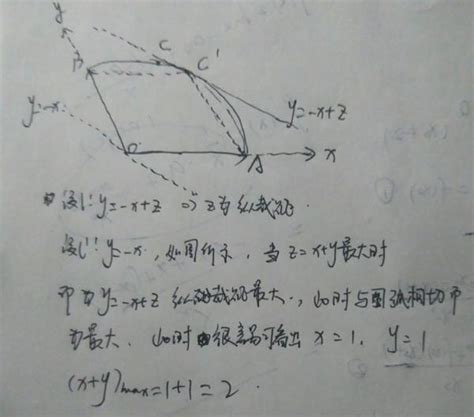 y
C
C'
B
y=-x
y=-x+z
O
A
x
设l: y=-x+z ⇒ z为纵截距.
设l': y=-x, 如图所示, 当 z=x+y最大时
即为y=-x+z 纵截距最大., 此时与圆弧相切即
为最大. 此时由很容易可看出 x=1, y=1
(x+y)max=1+1=2.